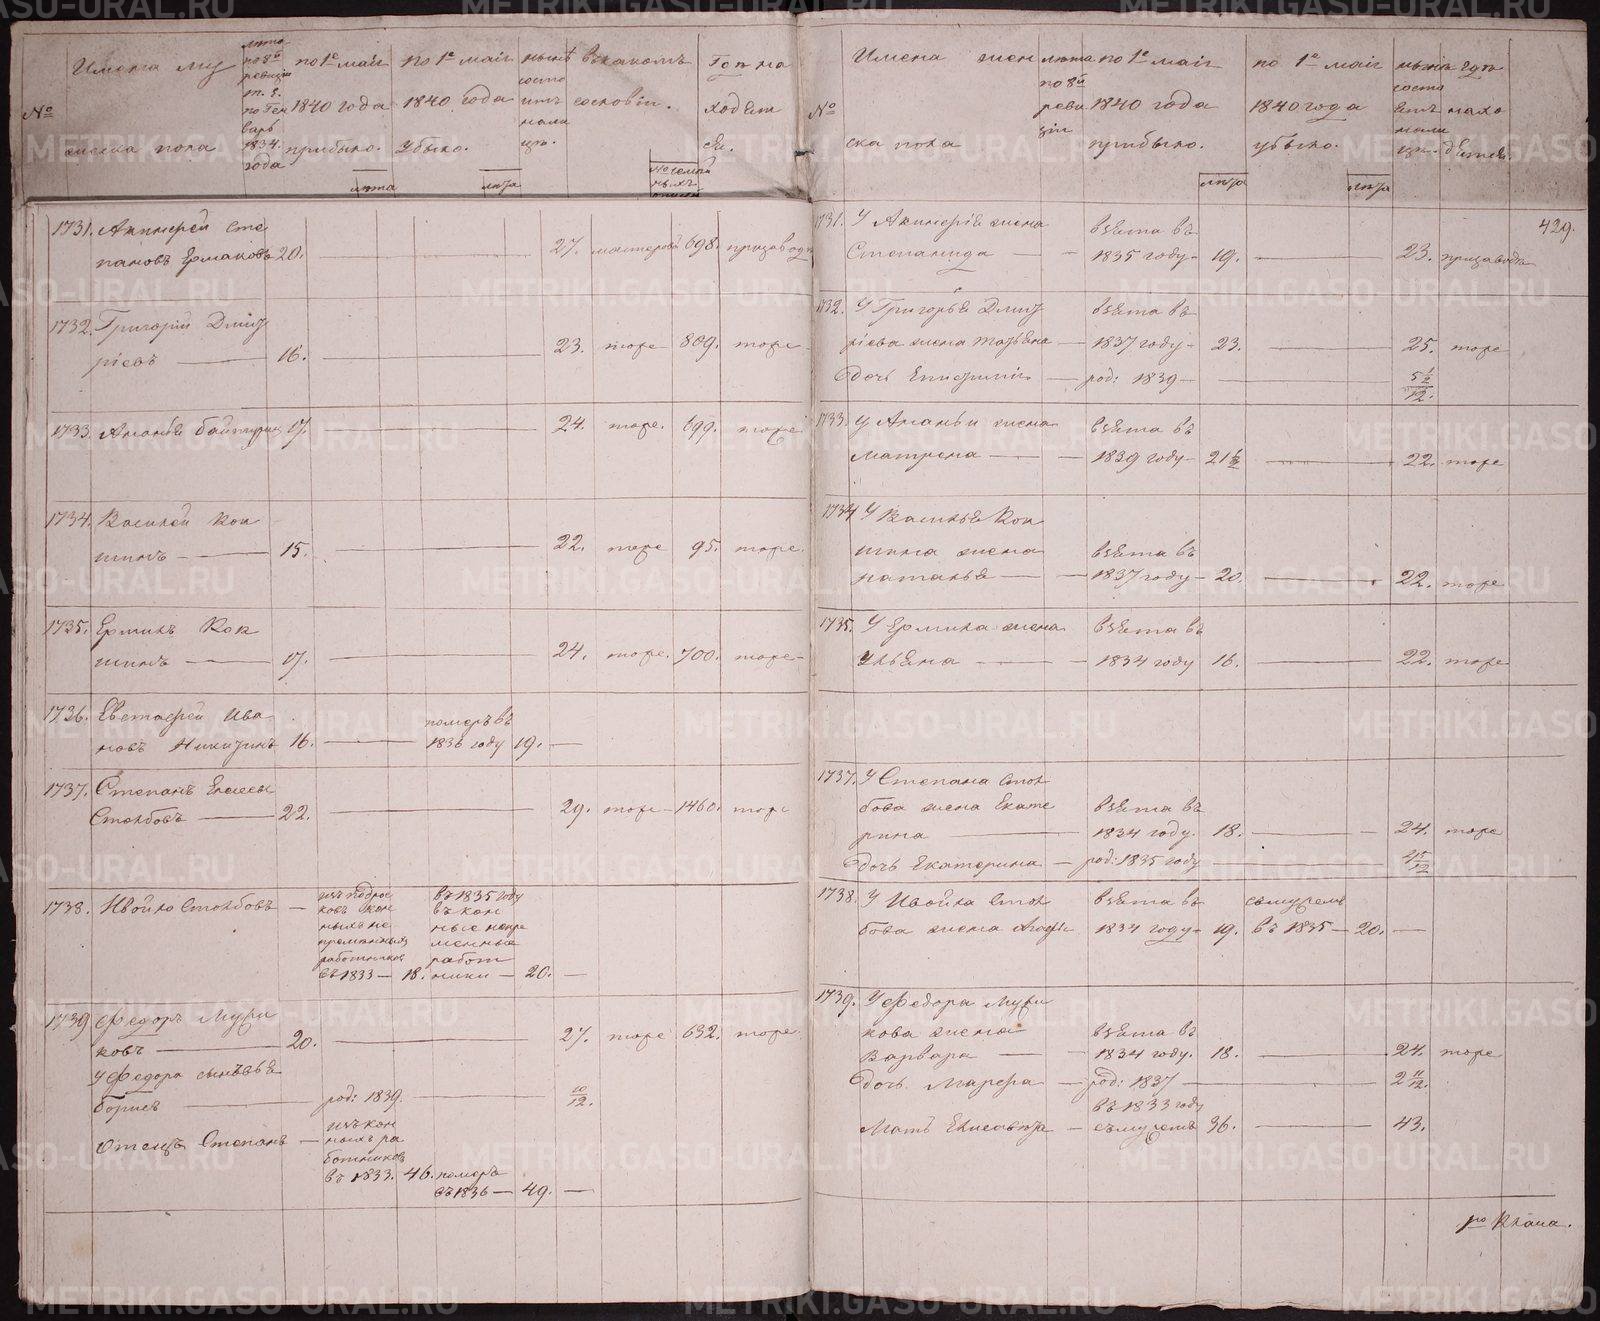 №
Имена му
жеска пола
лѣта
по 8й
ревизіи
т. е.
по Ген
варь
1834
года
по 1е маія
1840 года
прибыло.
лѣта
по 1е маія
1840 года
убыло.
лѣта
нынѣ
состо
итъ
нали
цо.
въ какомъ
сословіи.
Гдѣ на
ходят
ся.
1731. Акинфей Сте
пановъ Ермаковъ 20. 27. мастеровъ 698. призаводѣ
1732. Григорій Дмит
ріевъ 16. 23. тоже 809. тоже
1733. Ананья 17. 24. тоже. 699. тоже
1734. Василей Кок
шинъ 15. 22. тоже 95. тоже.
1735. Ермилъ Кок
шинъ 17. 24. тоже. 700. тоже
1736. Евстафей Ива
новъ Никитинъ 16. померъ въ
1836 году 19.
1737. Степанъ Елисеев
Столбовъ 22. 29. тоже 1460. тоже
1738. Ивойло Столбовъ
изъ подрос
ковъ кон
ныхъ не
премѣнныхъ
работниковъ
въ 1833 18.
въ 1835 году
въ кон
ные непре
менные
работ
ники 20.
1739 Федоръ Мури
ковъ 20. 27. тоже 632. тоже
У Федора сыновья
Борисъ род: 1839. 10/12.
Отецъ Степанъ
изъ кон
ныхъ ра
ботниковъ
въ 1833. 46. померъ
въ 1836 49.
№
Имена жен
ска пола
лѣта
по 8й
реви
зіи
по 1е маія
1840 года
прибыло.
лѣта
по 1е маія
1840 года
убыло.
лѣта
нынѣ
состо
итъ
нали
цо.
гдѣ
нахо
дятся.
429.
1731. У Акинфія жена
Степанида взята въ
1835 году 19. 23. призаводѣ
1732. У Григорья Дмит
ріева жена Татьяна взята въ
1837 году 23. 25. тоже
Дочь Епистимія род: 1839
1733. У Ананьи жена взята въ
Матрена 1839 году 21 22. тоже
1734 У Василья Кок
шина жена взята въ
Наталья 1837 году 20. 22. тоже
1735. У Ермила жена взята въ
Ульяна 1834 году 16. 22. тоже
1737. У Степана Стол
бова жена Екате взята въ
рина 1834 году. 18. 24. тоже
Дочь Екатерина род: 1835 году
1738. У Ивойла Стол взята въ съ мужемъ
бова жена 1834 году 19. въ 1835 20.
1739. У Федора Мури
кова жена взята въ
Варвара 1834 году. 18. 24. тоже
Дочь Марфа род: 1837 2 11/12.
въ 1833 году
Мать Елисавета съ мужемъ 36. 43.
METRIKI.GASO-URAL.RU